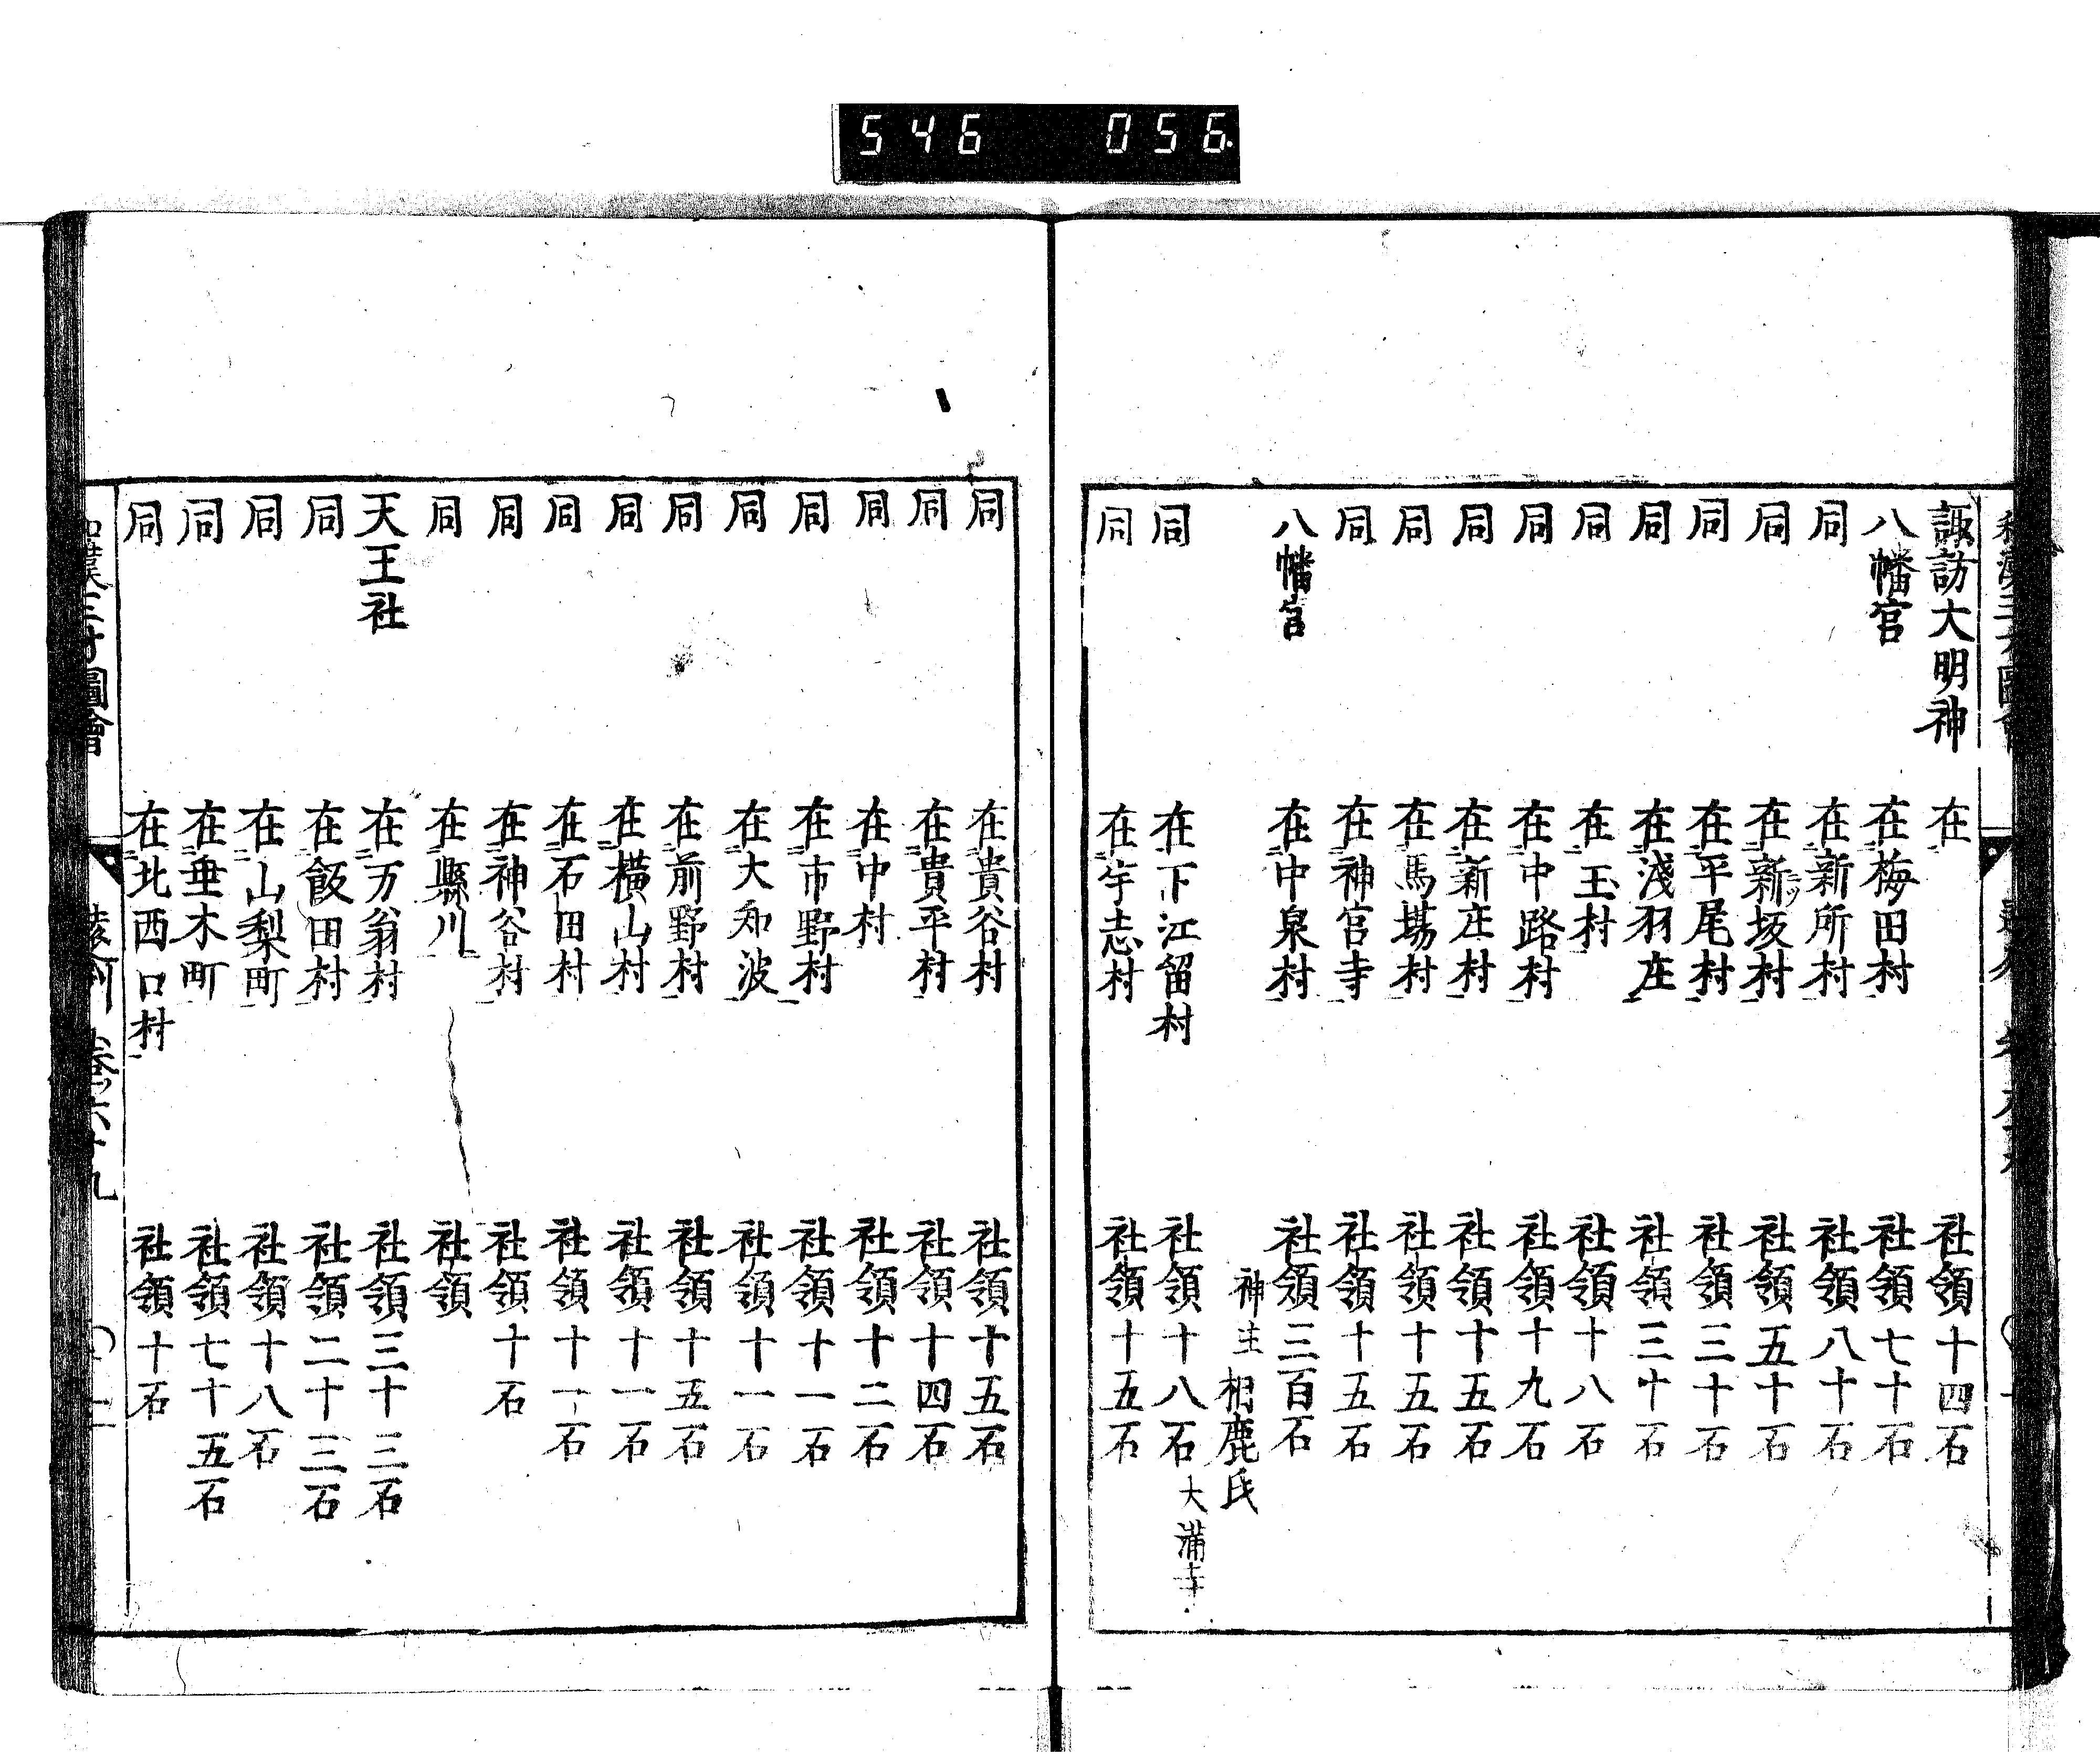 546 056
諏訪大明神 在 社領十四石
八幡宮 在梅田村 社領七十石
同 在新所村 社領八十石
同 在新坂村 社領五十石
同 在平尾村 社領三十石
同 在淺羽庄 社領三十石
同 在玉村 社領十八石
同 在中路村 社領十九石
同 在新庄村 社領十五石
同 在馬場村 社領十五石
同 在神宮寺 社領十五石
八幡宮 在中泉村 社領三百石
神主 相鹿氏
同 在下江留村 社領十八石 大滿寺
同 在宇志村 社領十五石
同 在貴谷村 社領十五石
同 在貴平村 社領十四石
同 在中村 社領十二石
同 在市野村 社領十一石
同 在大知波 社領十一石
同 在前野村 社領十五石
同 在橫山村 社領十一石
同 在石田村 社領十一石
同 在神谷村 社領十石
同 在縣川 社領
天王社 在万翁村 社領三十三石
同 在飯田村 社領二十三石
同 在山梨町 社領十八石
同 在垂木町 社領七十五石
同 在北西口村 社領十石
和漢三才圖會 卷六十九